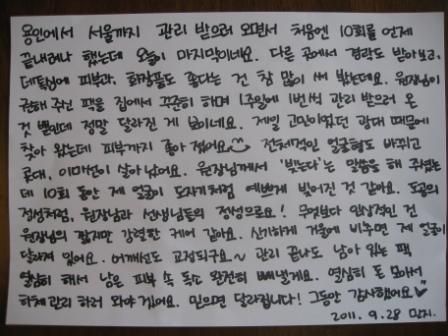 용인에서 서울까지 관리 받으러 오면서 처음엔 10회를 언제
끝내려나 했는데 오늘이 마지막이네요. 다른 곳에서 경락도 받아보고,
피부과, 화장품도 좋다는 건 참 많이 써 봤는데요. 원장님이
권해 주신 팩을 집에서 꾸준히 하며 1주일에 1번씩 관리 받으러 온
것 뿐인데 정말 달라진 게 보이네요. 제일 고민이었던 광대 때문에
찾아 왔는데 피부까지 좋아 졌어요 전체적인 얼굴형도 바뀌고
콧대, 이마선이 살아났어요. 원장님께서 '빚는다'는 말씀을 해 주셨는
데 10회 동안 제 얼굴이 도자기처럼 예쁘게 빚어진 것 같아요. 도공의
정성처럼, 원장님과 선생님들의 정성으로요! 무엇보다 인상적인 건
원장님의 짧지만 강렬한 케어 같아요. 신기하게 거울에 비추면 제 얼굴이
달라져 있어요. 어깨선도 교정되구요~ 관리 끝나도 남아 있는 팩
열심히 해서 남은 피부 속 독소 완전히 빼낼게요. 열심히 돈 모아서
하체관리 하러 와야 겠어요. 믿으면 달라집니다! 그동안 감사했어요♡
2011. 9. 28